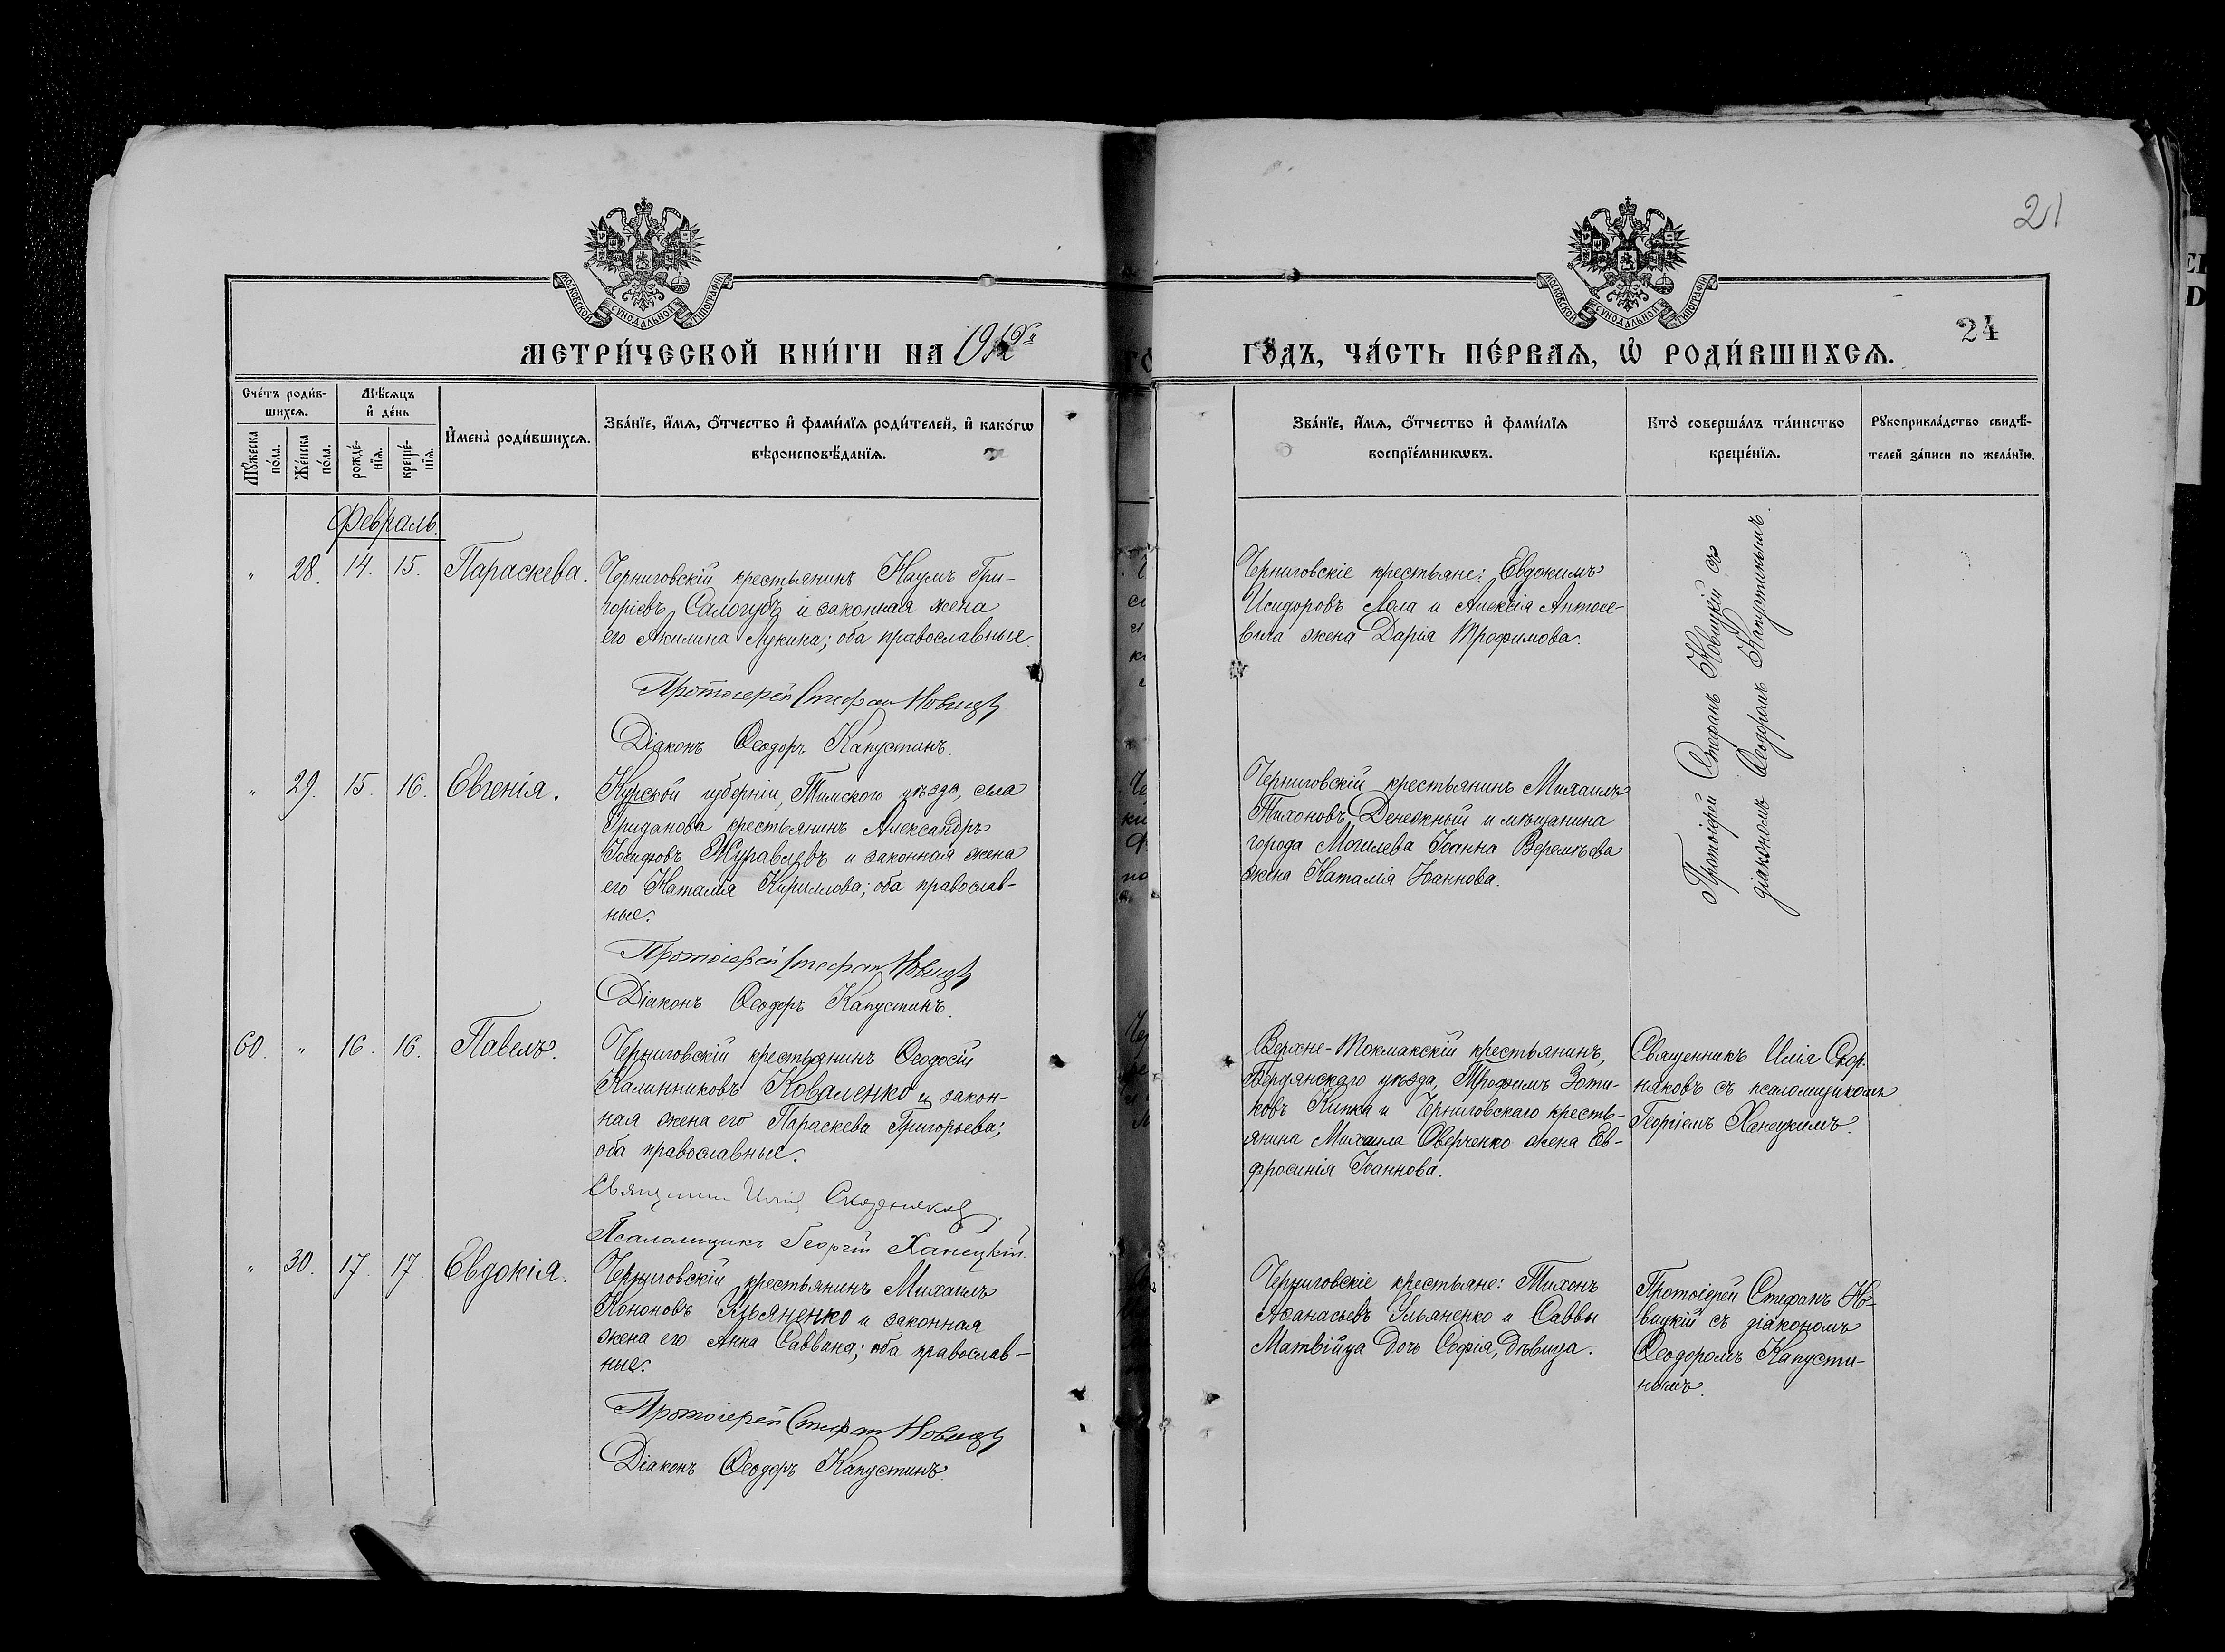 21
МОСКОВСКОЙ СѴНОДАЛЬНОЙ ТИПОГРАФІИ
МОСКОВСКОЙ СѴНОДАЛЬНОЙ ТИПОГРАФІИ
МЕТРИ́ЧЕСКОЙ КНИ́ГИ НА 1912
ГО́ДЪ, ЧА́СТЬ ПЕ́РВАѦ, Ѡ РОДИ́ВШИХСѦ.
24
Сче́тъ роди́в-
шихсѧ.
Мѣ́сѧцъ
и҆ де́нь
И҆мена̀ роди́вшихсѧ.
Зва́нїе, и҆́мѧ, ѻ҆́тчество и҆ фами́лїѧ роди́телей, и҆ како́гѡ
вѣроисповѣ́данїѧ.
Мꙋ́жеска
по́ла.
Же́нска
по́ла.
рожде́-
нїѧ.
креще́-
нїѧ.
Зва́нїе, и҆́мѧ, ѻ҆́тчество и҆ фами́лїѧ
воспрїе́мникѡвъ.
Кто̀ соверша́лъ та́инство
креще́нїѧ.
Рꙋкоприкла́дство свидѣ́-
телей за́писи по жела́нїю.
Февраль.
" 28. 14. 15. Параскева.
Черниговскій крестьянинъ Наумъ Гри-
горіевъ Салогубъ и законная жена
его Акилина Лукина; оба православные.
Протоіерей Стефан Новицкій
Діаконъ Ѳеодоръ Капустинъ.
Черниговскіе крестьяне: Евдокимъ
Исидоровъ Лола и Алексія
жена Дарія Трофимова.
Протоіерей Стефанъ Новицкій съ
діакономъ Ѳеодоромъ Капустинымъ.
" 29. 15. 16. Евгенія.
Курской губерніи, Тимского уѣзда, села
Гриданова крестьянинъ Александръ
Іосифовъ Муравлевъ и законная жена
его Наталія Кириллова; оба православ-
ные.
Протоіерей Стефан Новицкій
Діаконъ Ѳеодоръ Капустинъ.
Черниговскій крестьянинъ Михаилъ
Тихоновъ Денежный и мѣщанина
города Могилева Іоанна Веремѣева
жена Наталія Іоаннова.
60. " 16. 16. Павелъ.
Черниговскій крестьянинъ Ѳеодосій
Калинниковъ Коваленко и закон-
ная жена его Параскева Григорьева;
оба православные.
Священник Илія Скорняковъ.
Псаломщикъ Георгій Ханецкій.
Верхне-Токмакскій крестьянинъ,
Бердянскаго уѣзда, Трофимъ Зоти-
ковъ Кипка и Черниговскаго кресть-
янина Михаила Оверченко жена Ев-
фросинія Іоаннова.
Священникъ Илія Скор-
няковъ съ псаломщикомъ
Георгіемъ Ханецкимъ.
" 30. 17. 17. Евдокія.
Черниговскій крестьянинъ Михаилъ
Кононовъ Ульяненко и законная
жена его Анна Саввина; оба православ-
ные.
Протоіерей Стефан Новицкій
Діаконъ Ѳеодоръ Капустинъ.
Черниговскіе крестьяне: Тихонъ
Аѳанасьевъ Ульяненко и Саввы
Матвійца дочь Софія, дѣвица.
Протоіерей Стефанъ Но-
вицкій съ діакономъ
Ѳеодоромъ Капусти-
нымъ.